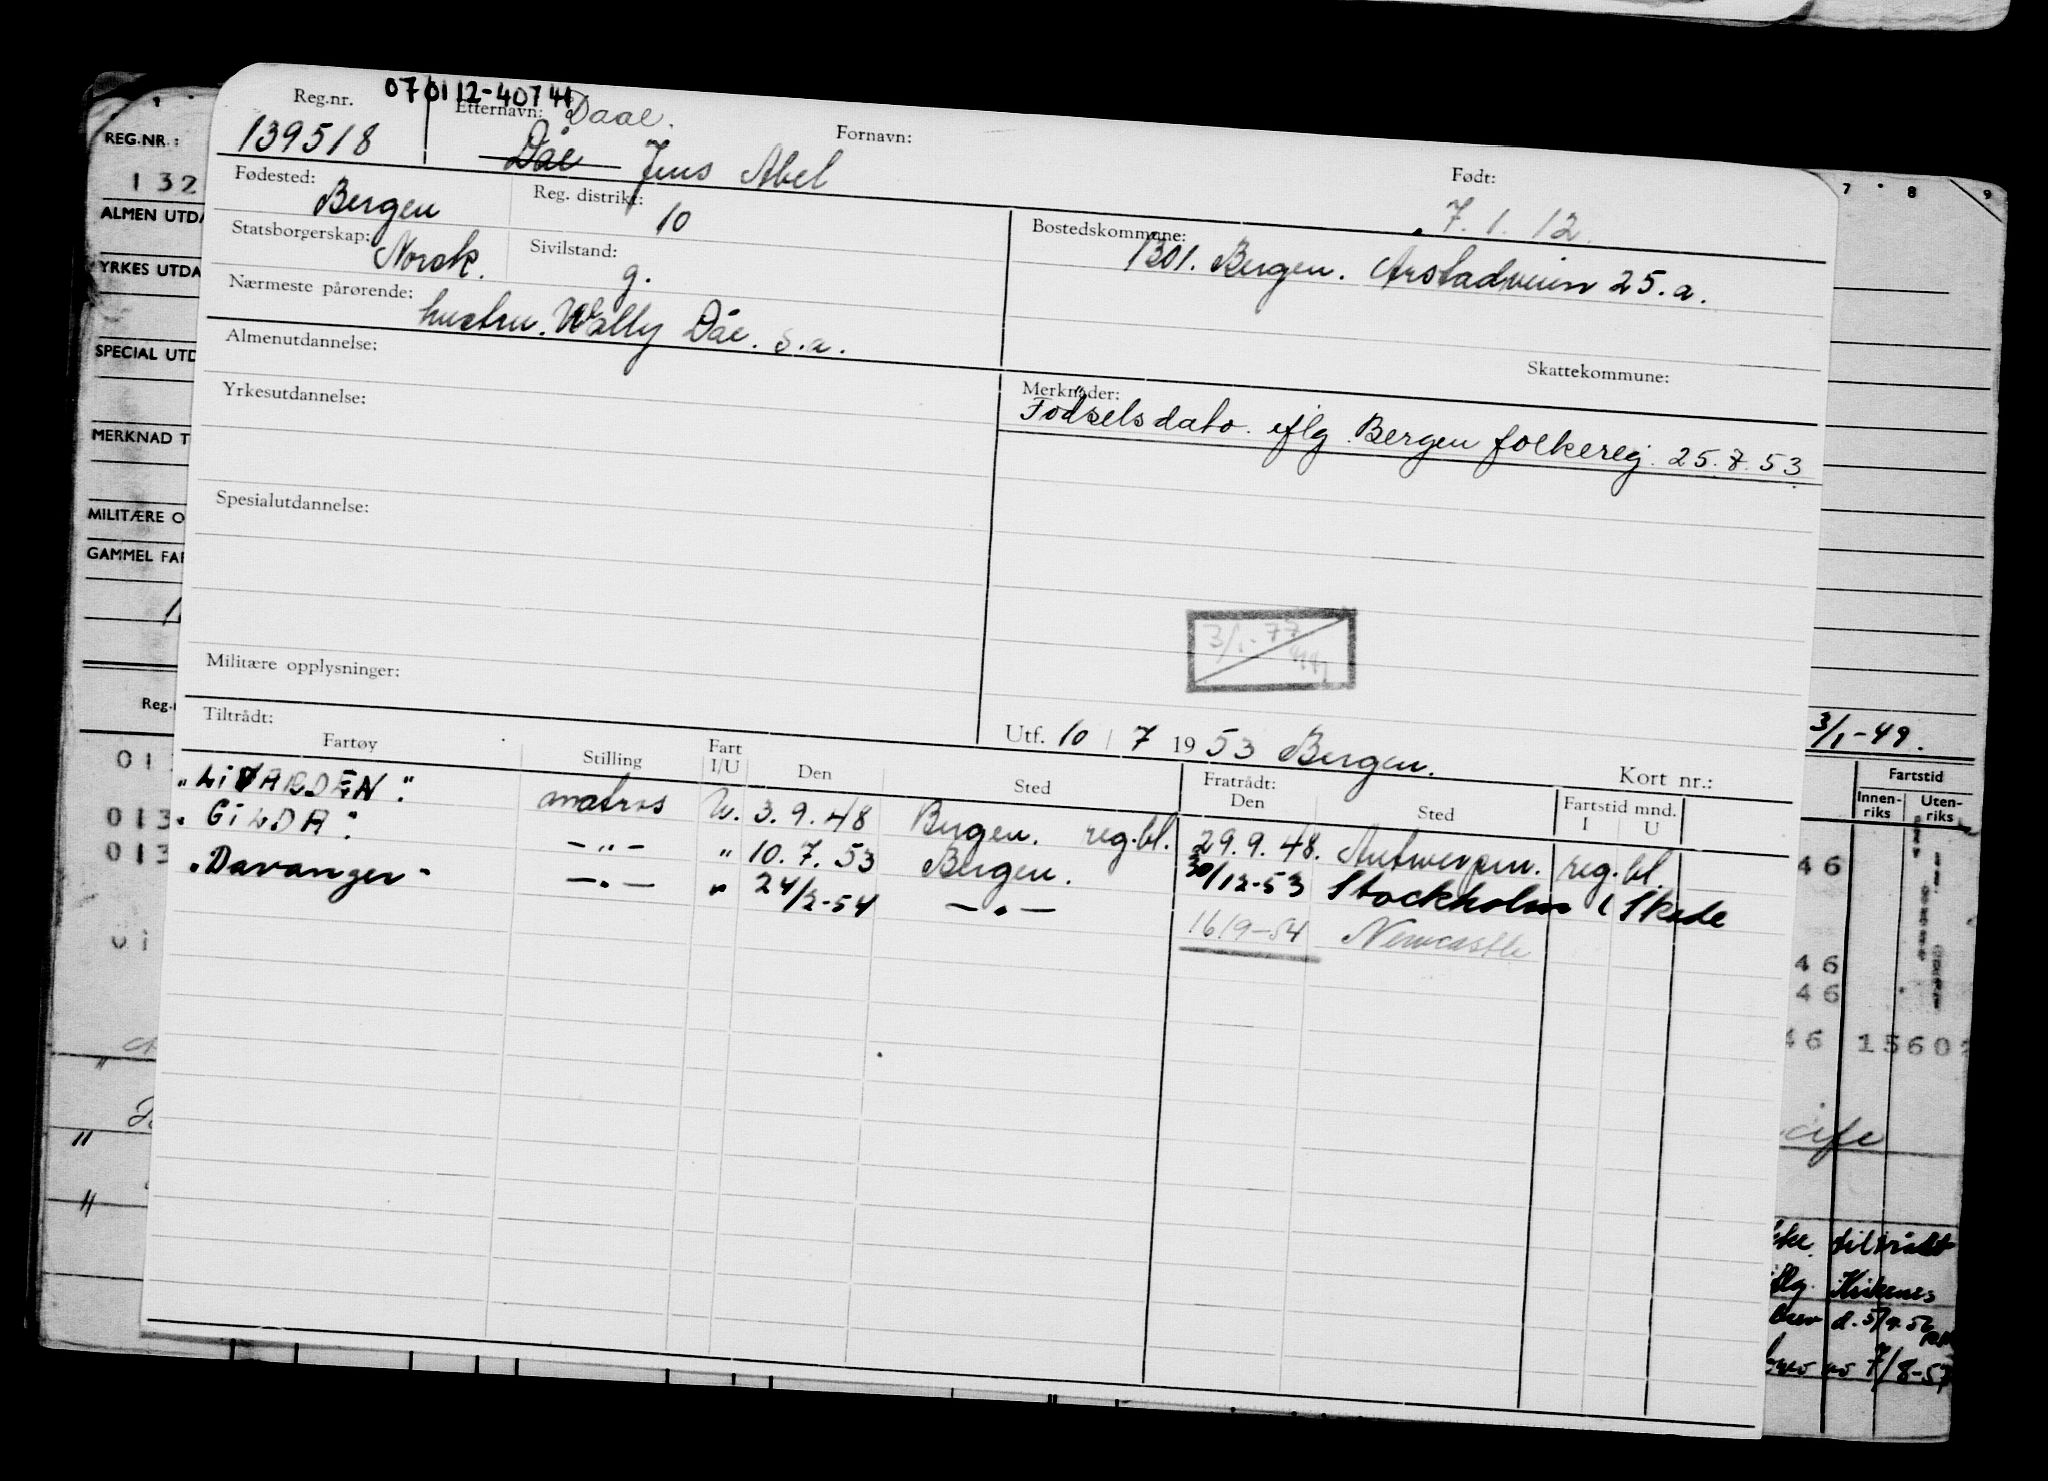 070112-40741
Reg.nr. Etternavn: Daae. Fornavn: Født:
139518 Dåe Jens Abel 7.1.12.
Fødested: Bergen Reg. distrikt: 10 Bostedskommune: 1301. Bergen. Årstadveien 25.a.
Statsborgerskap: Norsk. Sivilstand: g.
Nærmeste pårørende: hustru. Wally Dåe. s.a.
Almenutdannelse: Skattekommune:
Yrkesutdannelse: Merknader:
Fødselsdato iflg. Bergen folkereg. 25.7.53
Spesialutdannelse:
3/1-77
Militære opplysninger:
Utf. 10 / 7 1953 Bergen. Kort nr.:
Tiltrådt: Fratrådt:
Fartøy Stilling Fart I/U Den Sted Den Sted Fartstid mnd. I U
"LIVARDEN" matros U. 3.9.48 Bergen. reg.bl. 29.9.48. Antwerpen. reg.bl.
"GILDA" -"- " 10.7.53 Bergen. 30/12-53 Stockholm Skade
"Davanger" -"- " 24/2-54 -"- 16/9-54 Newcastle
REG.NR.:
132
ALMEN UTDA
YRKES UTDA
SPECIAL UTD
MERKNAD T
MILITÆRE O
GAMMEL FAR
Reg.
01
013
013
01
7 8 9
3/1-49.
Fartstid
Innenriks Utenriks
46
46
46
46 1560
tiltrådt
Kirkenes